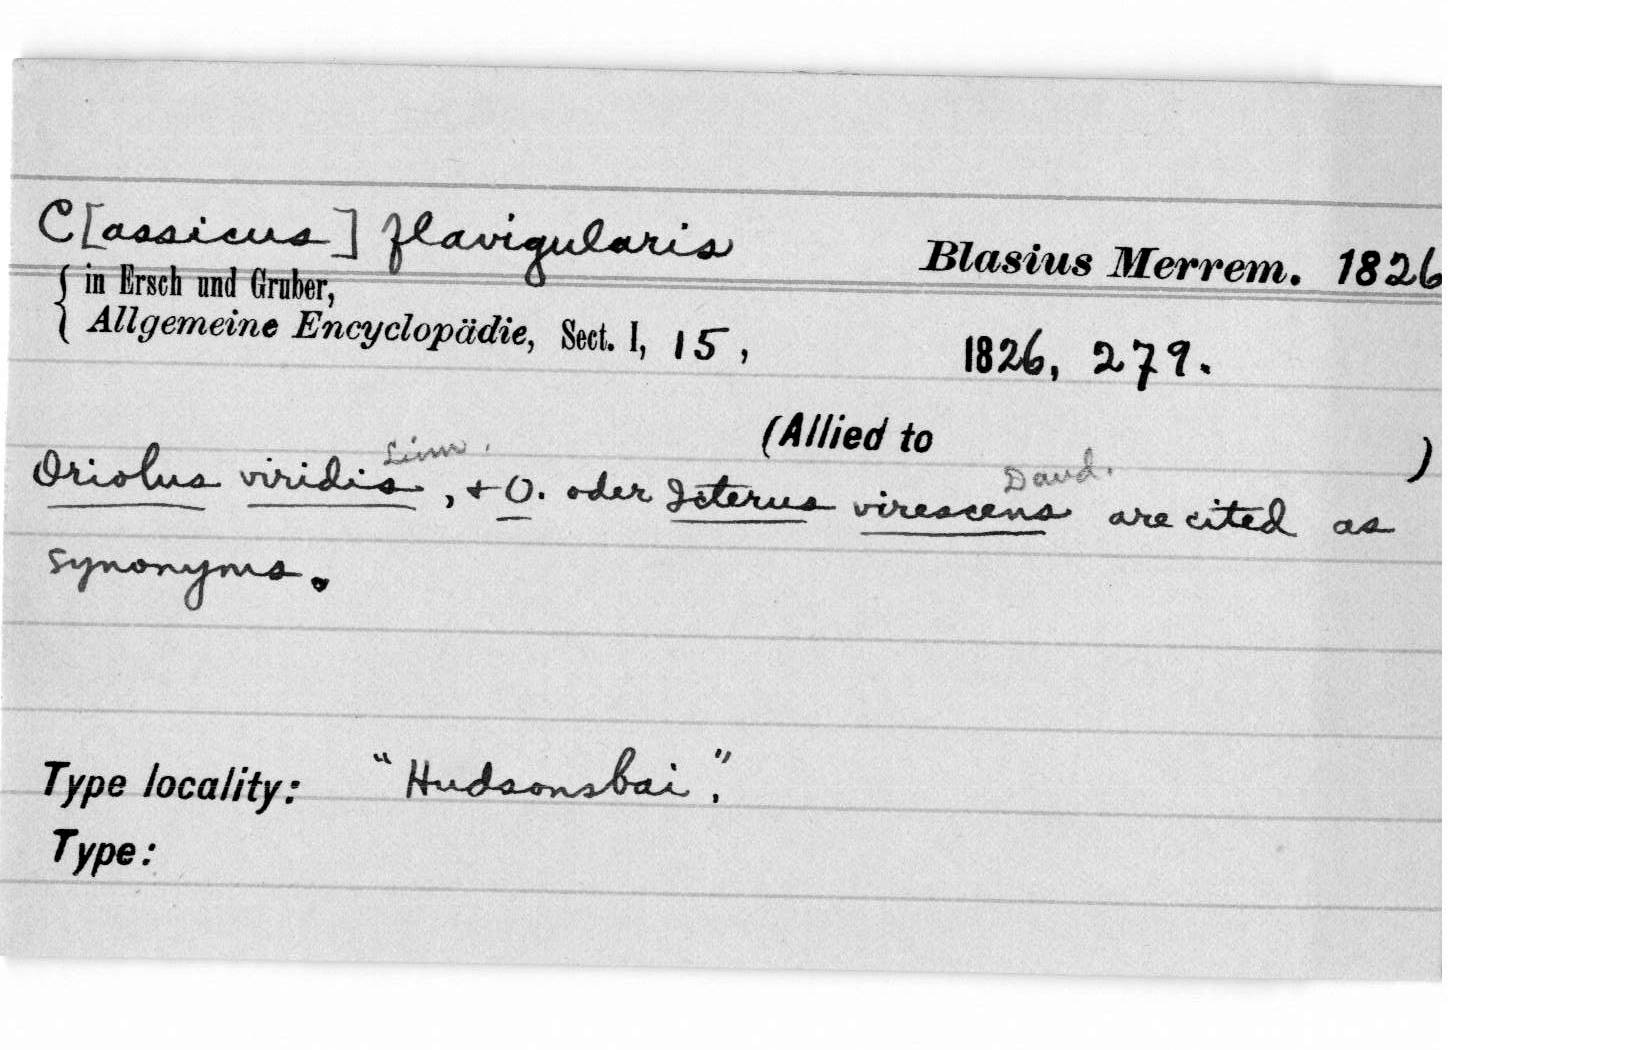 C[assicus] flavigularis Blasius Merrem. 1826
in Ersch und Gruber,
Allgemeine Encyclopädie, Sect. I, 15, 1826, 279.
(Allied to )
Linn. Daud.
Oriolus viridis, + O. oder Icterus virescens are cited as
synonyms.
Type locality: "Hudsonsbai".
Type: